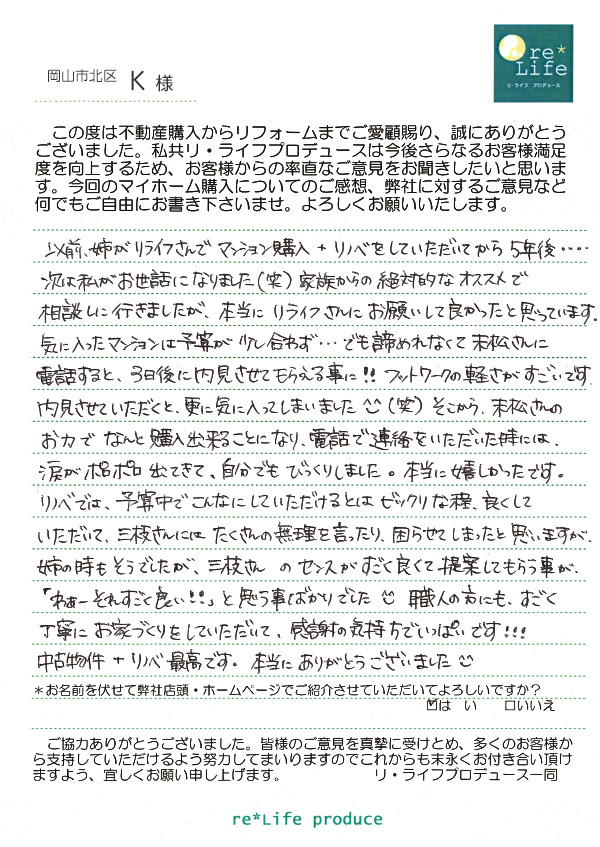 re*
Life
リ・ライフ プロデュース
岡山市北区 K 様
この度は不動産購入からリフォームまでご愛顧賜り、誠にありがとう
ございました。私共リ・ライフプロデュースは今後さらなるお客様満足
度を向上するため、お客様からの率直なご意見をお聞きしたいと思いま
す。今回のマイホーム購入についてのご感想、弊社に対するご意見など
何でもご自由にお書き下さいませ。よろしくお願いいたします。
以前、姉がリライフさんで マンション購入 + リノベをしていただいてから 5年後‥‥
次は私がお世話になりました(笑) 家族からの 絶対的な オススメで
相談しに行きましたが、本当に リライフさんに お願いして良かったと思っています.
気に入ったマンションは予算が少し合わず… でも諦めれなくて 末松さんに
電話すると、3日後に内見させてもらえる事に!! フットワークの軽さがすごいです.
内見させていただくと、更に気に入ってしまいました(笑) そこから、末松さんの
お力で なんと 購入出来ることになり、電話で連絡をいただいた時には、
涙がポロポロ 出てきて、自分でも びっくりしました。本当に嬉しかったです。
リノベでは、予算中でこんなにしていただけるとは ビックリな程、良くして
いただいて、三枝さんには たくさんの無理を言ったり、困らせてしまったと思いますが、
姉の時もそうでしたが、三枝さん のセンスが すごく良くて 提案してもらう事が、
「わぁー それすごく良い!!」と 思う事ばかりでした 職人の方にも、すごく
丁寧に お家づくりをしていただいて、感謝の気持ちでいっぱいです!!!
中古物件 + リノベ 最高です。本当に ありがとうございました
*お名前を伏せて弊社店頭・ホームページでご紹介させていただいてよろしいですか?
☑は い □いいえ
ご協力ありがとうございました。皆様のご意見を真摯に受けとめ、多くのお客様か
ら支持していただけるよう努力してまいりますのでこれからも末永くお付き合い頂け
ますよう、宜しくお願い申し上げます。 リ・ライフプロデュース一同
re*Life produce